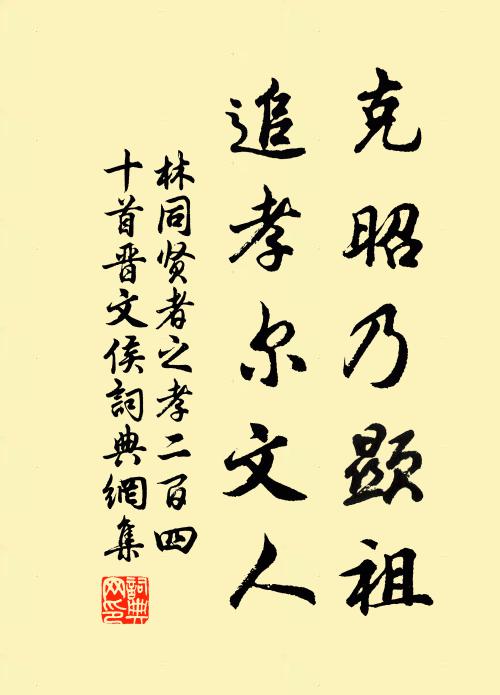 克昭乃顯祖
追孝尔文人
林同贤者之孝二百四
十首晋文侯詞典網集
詞典网印